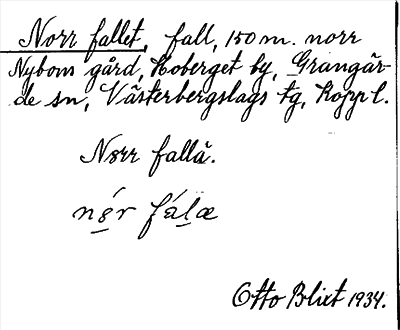 Norr fallet, fall, 150 m. norr
Nybons gård, Hoberget by, Grangär-
de sn, Västerbergslags tg, Kopp l.
Nørr fallä.
nǿr fálæ
Otto Blixt 1934.